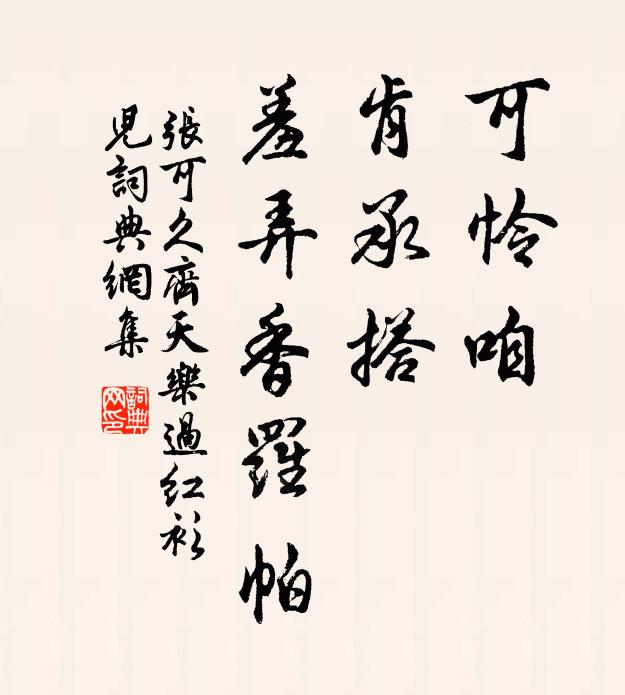 可怜咱
肯承搭
羞弄香羅帕
張可久齊天樂過红衫
児詞典網集
詞典
网印